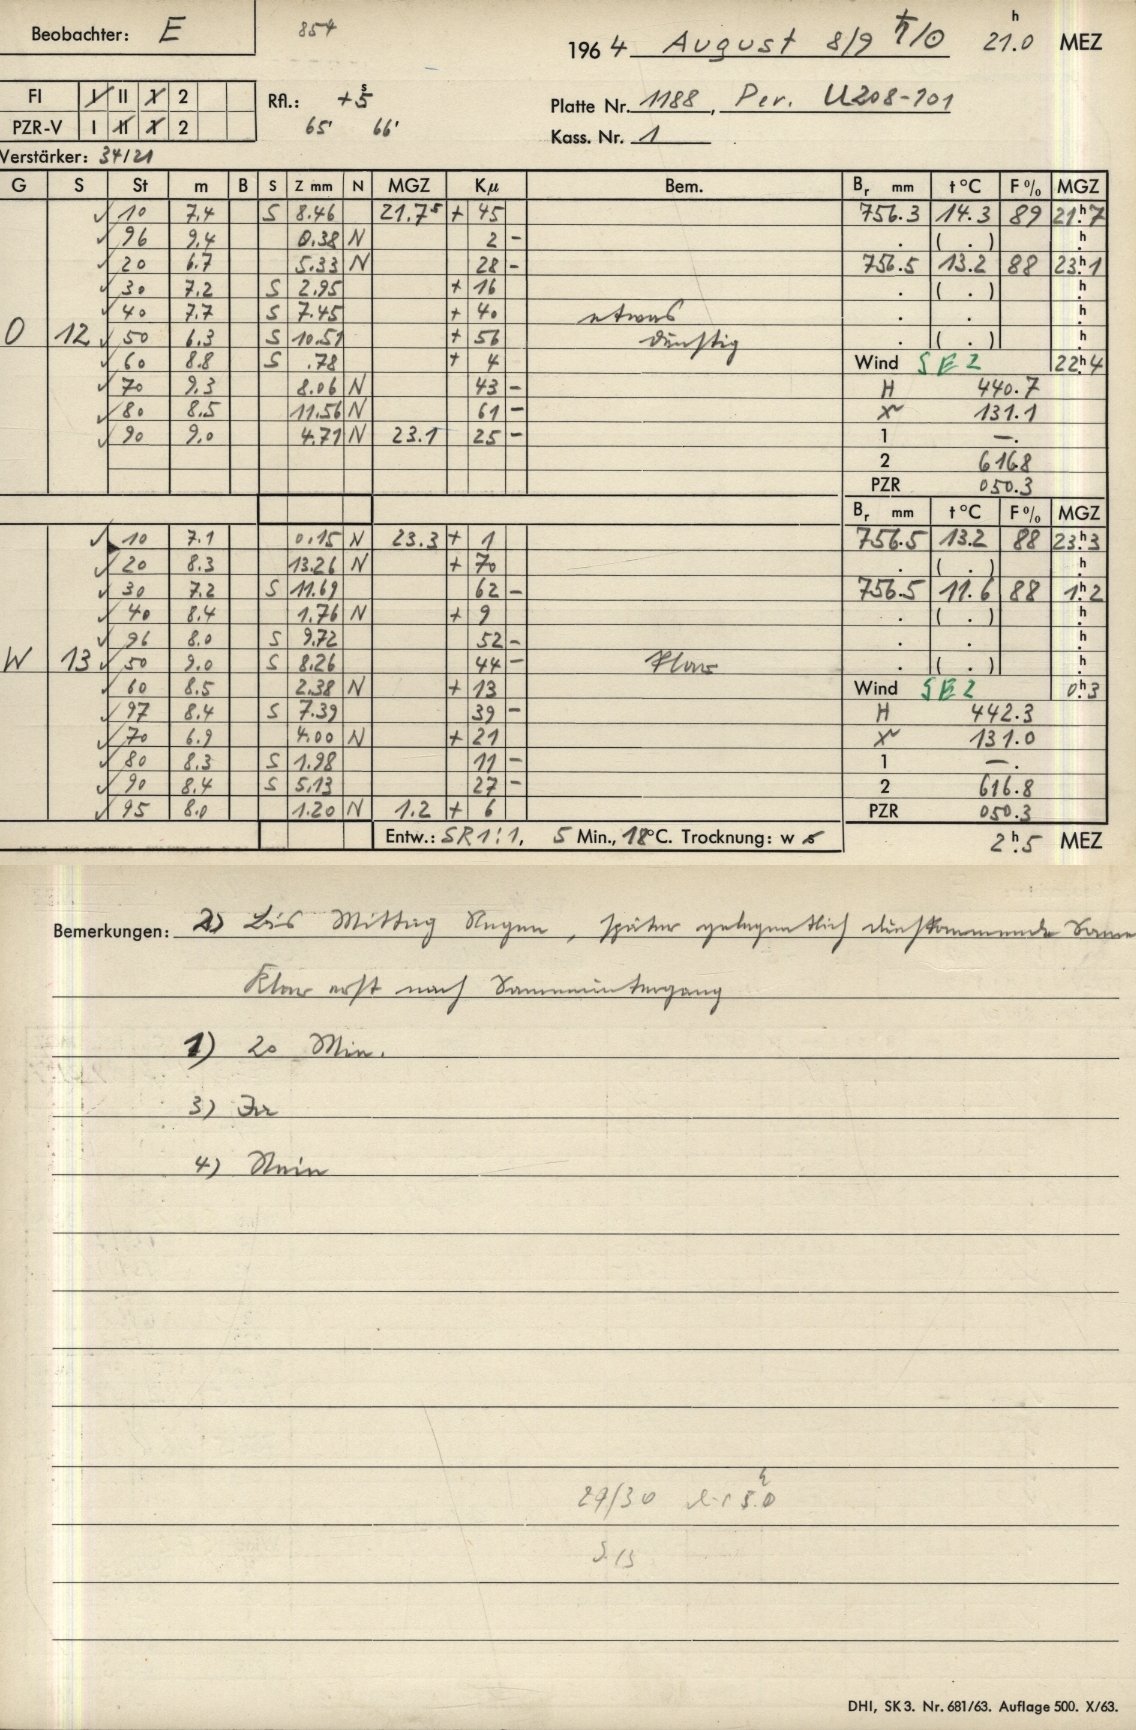 Beobachter: E 854 1964 August 8/9 ♄/⊙ 21.0 h MEZ
FI I II 1 2 Rfl.: +5 s Platte Nr. 1188, Per. U208-101
PZR-V I II 1 2 65' 66' Kass. Nr. 1
Verstärker: 34/21
G S St m B S Z mm N MGZ Kμ Bem. Br mm t °C F % MGZ
10 7.4 S 8.46 21.7⁵ + 45 756.3 14.3 89 21h.7
96 9.4 0.38 N 2 - . ( . ) h.
20 6.7 5.33 N 28 - 756.5 13.2 88 23h.1
30 7.2 S 2.95 + 16 . ( . ) h.
40 7.7 S 7.45 + 40 etwas . . h.
O 12 50 6.3 S 10.51 + 56 dunstig . ( . ) h.
60 8.8 S .78 + 4 Wind SE 2 22h.4
70 9.3 8.06 N 43 - H 440.7
80 8.5 11.56 N 61 - 131.1
90 9.0 4.71 N 23.1 25 - 1 —.
2 616.8
PZR 050.3
Br mm t °C F % MGZ
10 7.1 0.15 N 23.3 + 1 756.5 13.2 88 23h.3
20 8.3 13.26 N + 70 . ( . ) h.
30 7.2 S 11.69 62 - 756.5 11.6 88 1h.2
40 8.4 1.76 N + 9 . ( . ) h.
96 8.0 S 9.72 52 - . . h.
W 13 50 9.0 S 8.26 44 - klar . ( . ) h.
60 8.5 2.38 N + 13 Wind SE 2 0h.3
97 8.4 S 7.39 39 - H 442.3
70 6.9 4.00 N + 21 131.0
80 8.3 S 1.98 11 - 1 —.
90 8.4 S 5.13 27 - 2 616.8
95 8.0 1.20 N 1.2 + 6 PZR 050.3
Entw.: SR 1:1, 5 Min., 18°C. Trocknung: w 2h.5 MEZ
Bemerkungen: 2) Bis Mittag Regen, später gelegentlich
Klar erst nach Sonnenuntergang
1) 20 Min.
3) Ja
4) Nein
29/30 5.0 h
S 13
DHI, SK 3. Nr. 681/63. Auflage 500. X/63.